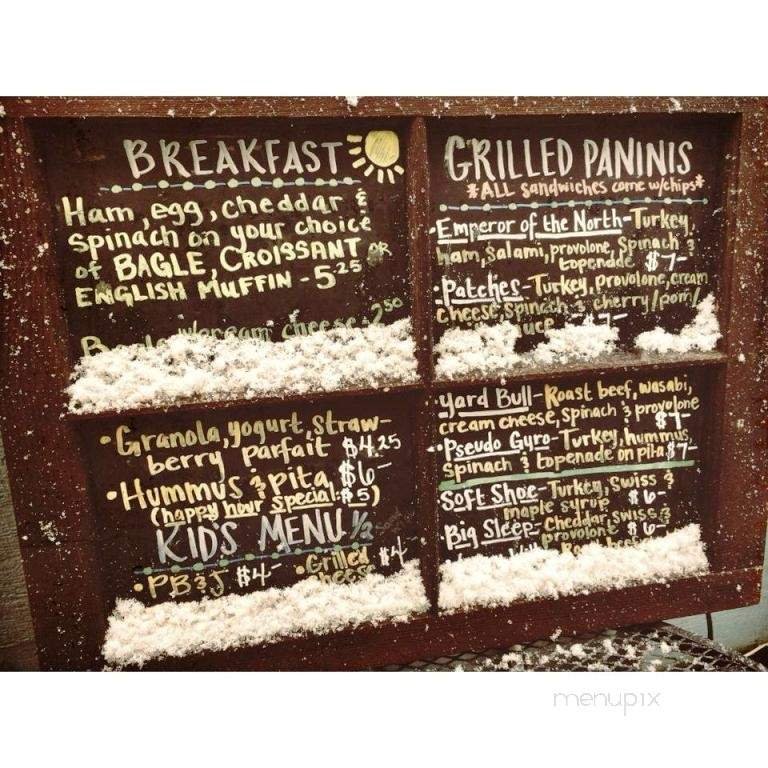 BREAKFAST
Ham, egg, cheddar &
Spinach on your choice
of BAGLE, CROISSANT OR
ENGLISH MUFFIN - 5.25
cream cheese - 2.50
• Granola, yogurt, straw-
berry parfait $4.25
• Hummus & pita $6-
(happy hour special: $5)
KID'S MENU 1/2
• PB & J $4-
• Grilled cheese $4
GRILLED PANINIS
*ALL Sandwiches come w/chips*
• Emperor of the North - Turkey,
ham, salami, provolone, Spinach &
topenade $7-
• Patches - Turkey, provolone, cream
cheese, spinach & cherry/pom/
$7-
Yard Bull - Roast beef, wasabi,
cream cheese, spinach & provolone
$7-
• Pseudo Gyro - Turkey, hummus,
Spinach & topenade on pita $7-
Soft Shoe - Turkey, Swiss &
maple syrup $6-
Big Sleep - Cheddar, swiss &
provolone $6-
Roast beef
menupix